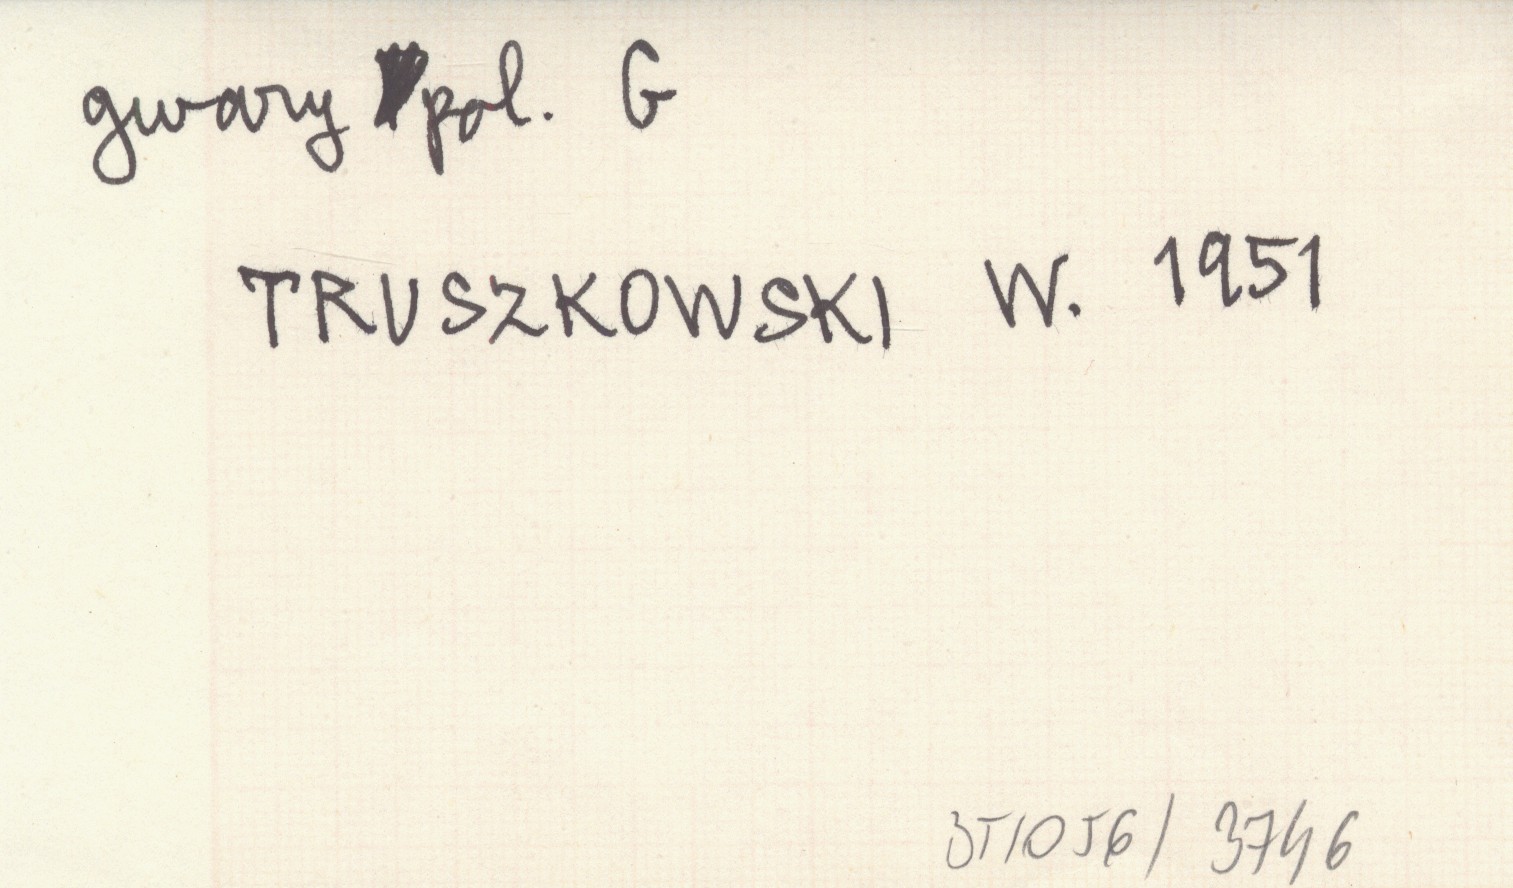 gwary pol. G
TRUSZKOWSKI W. 1951
3746